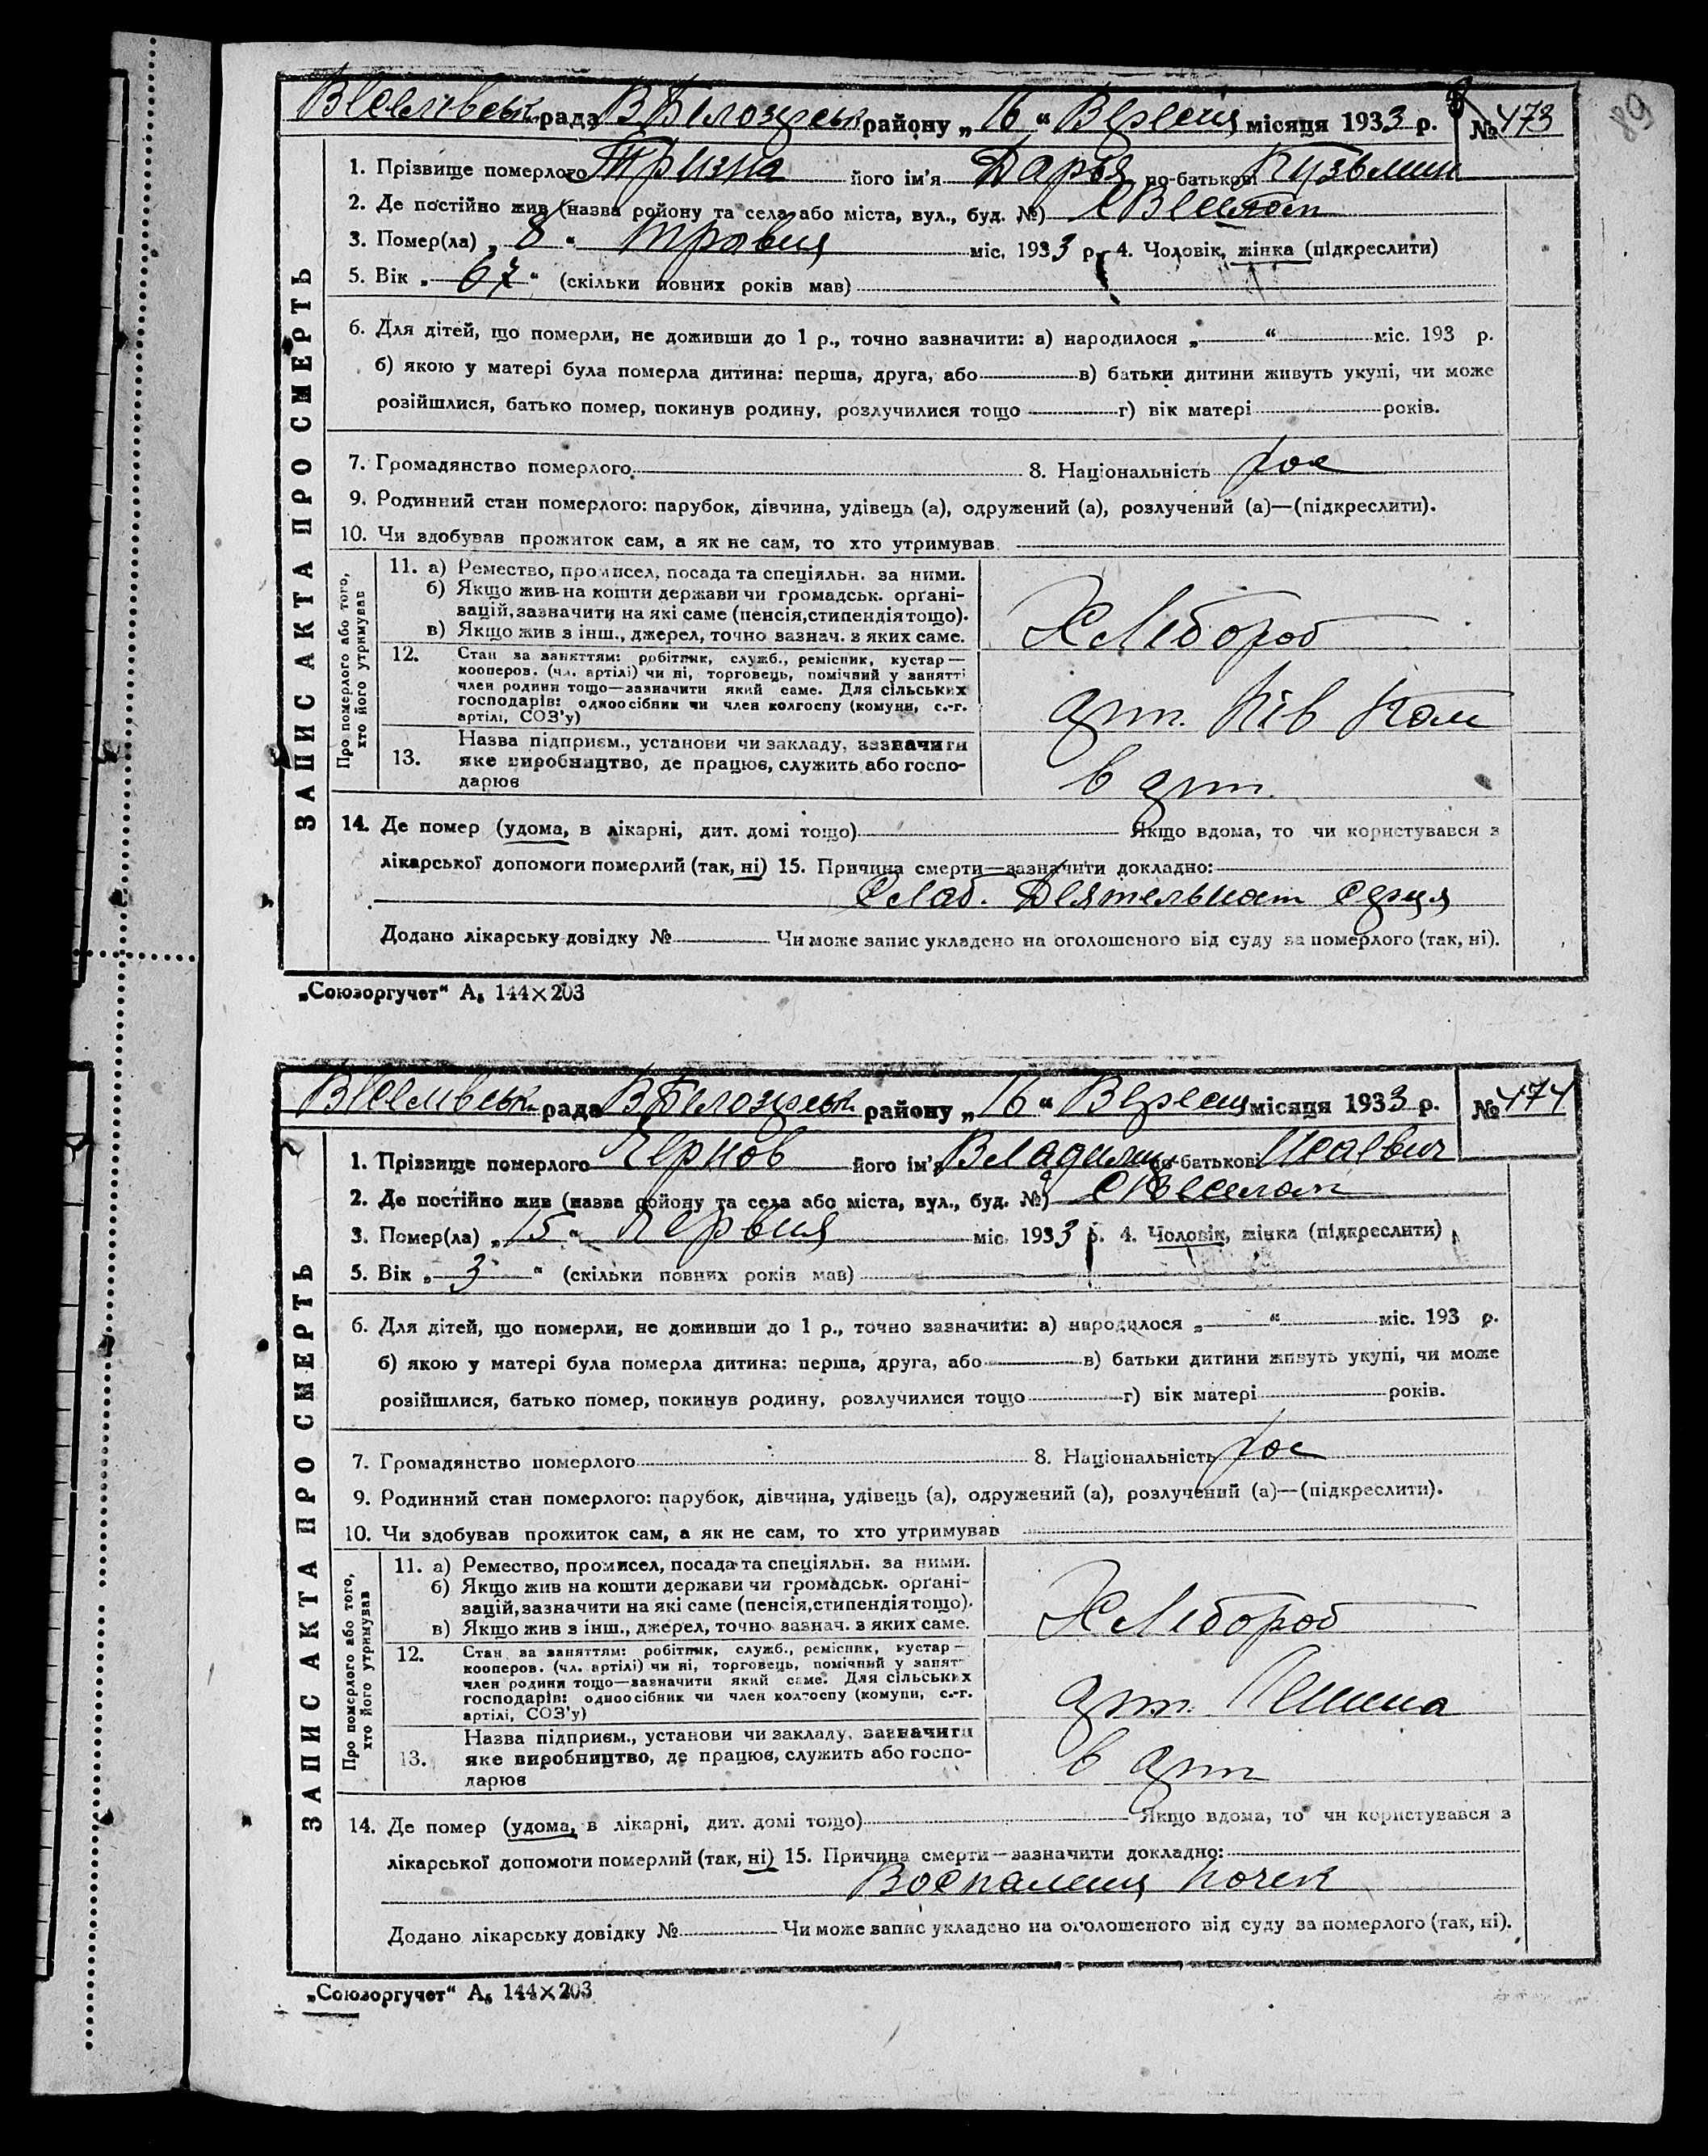 89
Веселівськ рада В Білозірськ району „16“ Вересня місяця 1933 р. № 473
ЗАПИС АКТА ПРО СМЕРТЬ
1. Прізвище померлого Тризна його ім'я Дарья по-батькові Кузьмин
2. Де постійно жив (назва району та села або міста, вул., буд. №)
3. Помер(ла) „8“ травня міс. 1933 р. 4. Чоловік, жінка (підкреслити)
5. Вік „67“ (скільки повних років мав)
6. Для дітей, що померли, не доживши до 1 р., точно зазначити: а) народилося „ “ міс. 193 р.
б) якою у матері була померла дитина: перша, друга, або в) батьки дитини живуть укупі, чи може
розійшлися, батько помер, покинув родину, розлучилися тощо г) вік матері років.
7. Громадянство померлого 8. Національність рос
9. Родинний стан померлого: парубок, дівчина, удівець (а), одружений (а), розлучений (а)—(підкреслити).
10. Чи здобував прожиток сам, а як не сам, то хто утримував
Про померлого або того,
хто його утримував
11. а) Ремество, промисел, посада та спеціяльн. за ними.
б) Якщо жив на кошти держави чи громадськ. орґані-
зацій, зазначити на які саме (пенсія, стипендія тощо).
в) Якщо жив з інш., джерел, точно зазнач. з яких саме.
Хлібороб
12. Стан за заняттям: робітник, служб., ремісник, кустар—
кооперов. (чл. артілі) чи ні, торговець, помічний у занятті
член родини тощо—зазначити який саме. Для сільських
господарів: одноосібник чи член колгоспу (комуни, с.-г.
артілі, СОЗ'у)
арт.
13. Назва підприєм., установи чи закладу, зазначити
яке виробництво, де працює, служить або госпо-
дарює
в арт.
14. Де помер (удома, в лікарні, дит. домі тощо) Якщо вдома, то чи користувався з
лікарської допомоги померлий (так, ні) 15. Причина смерти—зазначити докладно:
Слаб. Деятельност серця
Додано лікарську довідку № Чи може запис укладено на оголошеного від суду за померлого (так, ні).
„Союзоргучет“ А₅ 144×203
Веселівськ рада В Білозірськ району „16“ Вересня місяця 1933 р. № 474
ЗАПИС АКТА ПРО СМЕРТЬ
1. Прізвище померлого Чернов його ім'я Владимир по-батькові Исаевич
2. Де постійно жив (назва району та села або міста, вул., буд. №)
3. Помер(ла) „15“ Червня міс. 1933 р. 4. Чоловік, жінка (підкреслити)
5. Вік „3“ (скільки повних років мав)
6. Для дітей, що померли, не доживши до 1 р., точно зазначити: а) народилося „ “ міс. 193 р.
б) якою у матері була померла дитина: перша, друга, або в) батьки дитини живуть укупі, чи може
розійшлися, батько помер, покинув родину, розлучилися тощо г) вік матері років.
7. Громадянство померлого 8. Національність рос
9. Родинний стан померлого: парубок, дівчина, удівець (а), одружений (а), розлучений (а)—(підкреслити).
10. Чи здобував прожиток сам, а як не сам, то хто утримував
Про померлого або того,
хто його утримував
11. а) Ремество, промисел, посада та спеціяльн. за ними.
б) Якщо жив на кошти держави чи громадськ. орґані-
зацій, зазначити на які саме (пенсія, стипендія тощо).
в) Якщо жив з інш., джерел, точно зазнач. з яких саме.
Хлібороб
12. Стан за заняттям: робітник, служб., ремісник, кустар—
кооперов. (чл. артілі) чи ні, торговець, помічний у занят-
член родини тощо—зазначити який саме. Для сільських
господарів: одноосібник чи член колгоспу (комуни, с.-г.
артілі, СОЗ'у)
арт. Ленина
13. Назва підприєм., установи чи закладу, зазначити
яке виробництво, де працює, служить або госпо-
дарює
в арт
14. Де помер (удома, в лікарні, дит. домі тощо) Якщо вдома, то чи користувався з
лікарської допомоги померлий (так, ні) 15. Причина смерти—зазначити докладно:
Воспалення почек
Додано лікарську довідку № Чи може запис укладено на оголошеного від суду за померлого (так, ні).
„Союзоргучет“ А₅ 144×203